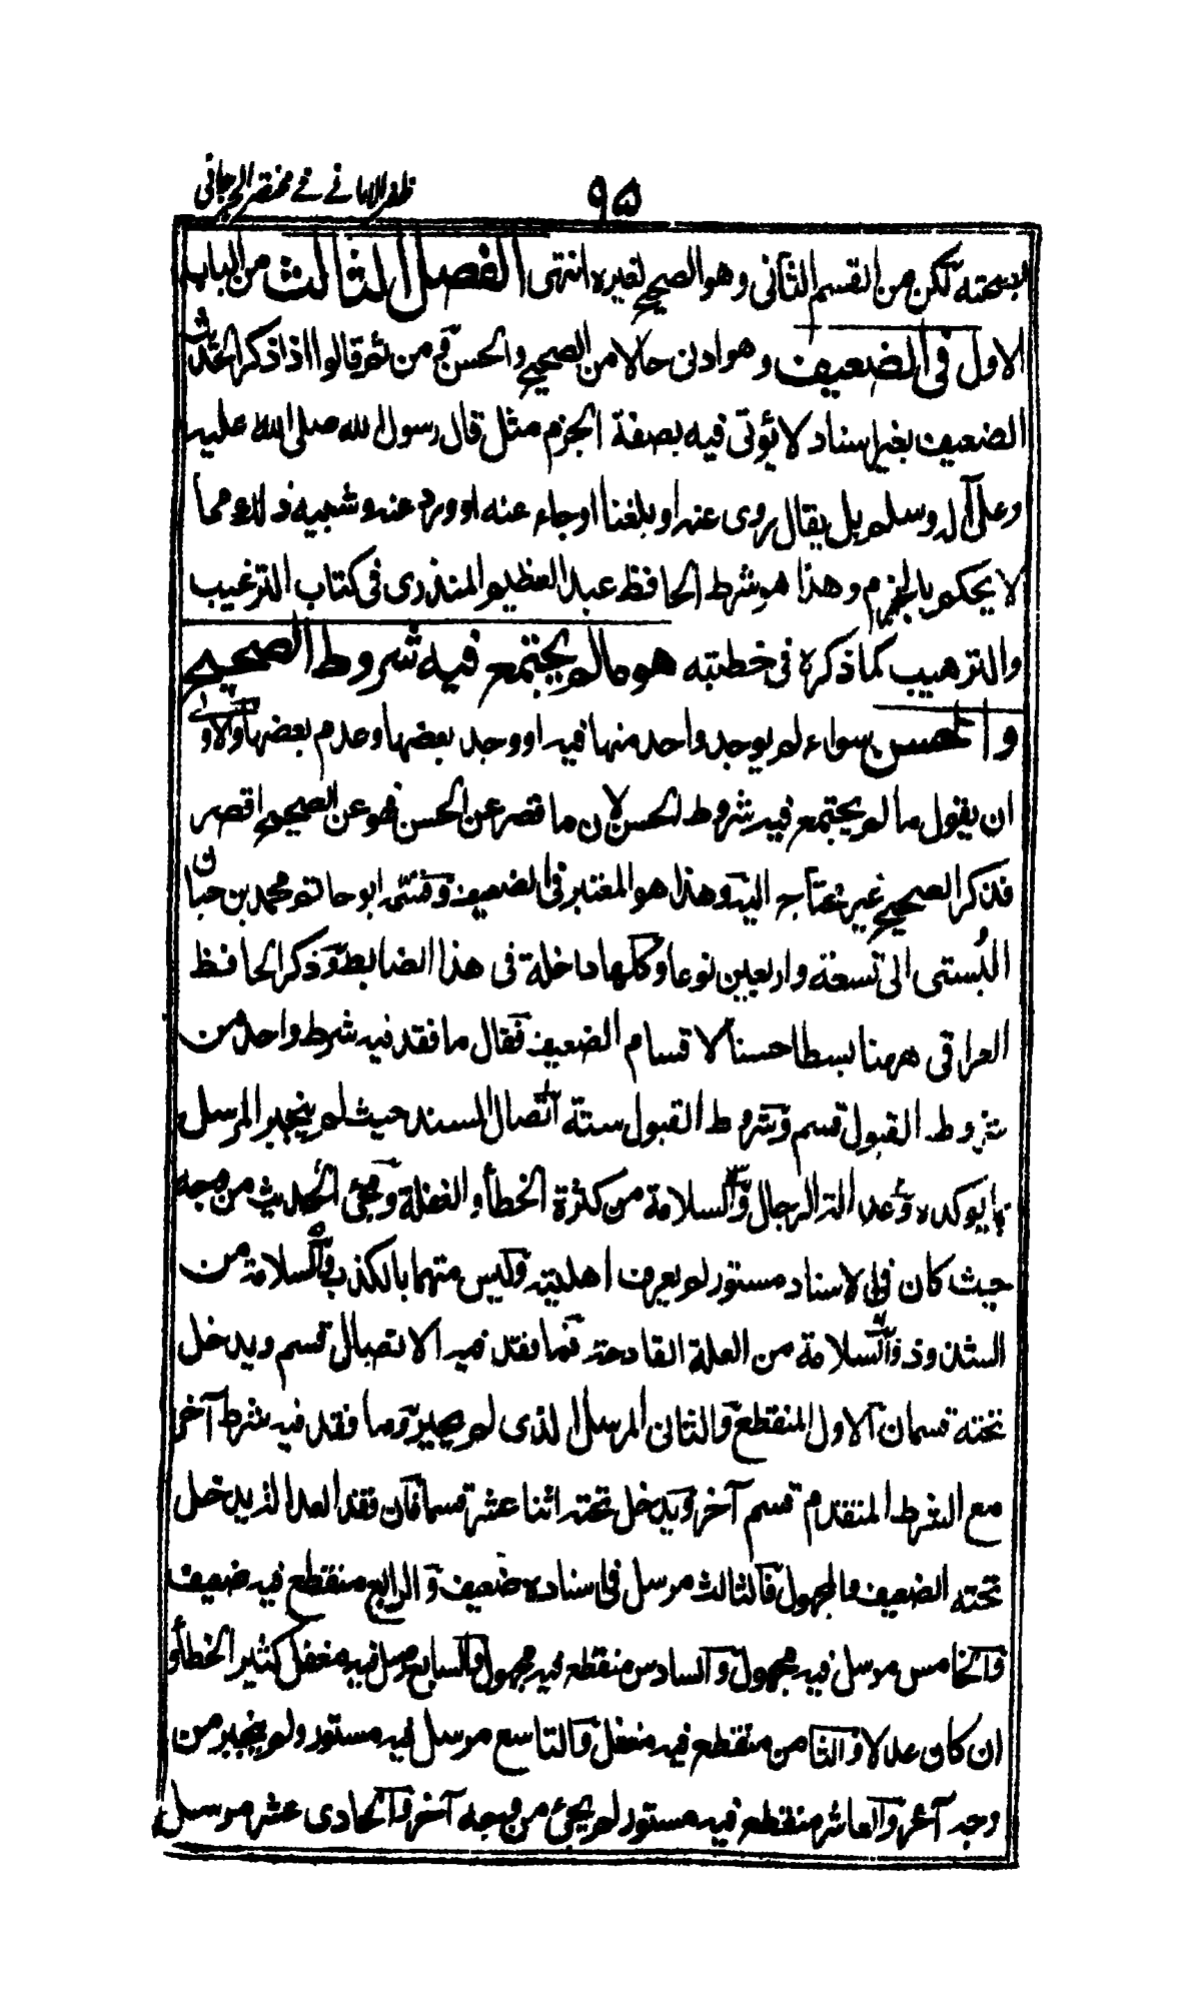 ظفر الاماني في مختصر الجرجاني
٩٥
بصحته لكن من القسم الثانى وهو الصحيح لغيره انتهى الفصل الثالث من الباب
الاول فى الضعيف وهو ادنى حالا من الصحيح والحسن ومن ثم قالوا اذا ذكر الحديث
الضعيف بغير اسناد لا يؤتى فيه بصفة الجزم مثل قال رسول الله صلى الله عليه
وعلى آله وسلم بل يقال روى عنه او بلغنا او جاء عنه او ورد عنه وشبيه ذلك مما
لا يحكم بالجزم وهذا هو شرط الحافظ عبد العظيم المنذرى فى كتاب الترغيب
والترهيب كما ذكره فى خطبته هو مالم يجتمع فيه شروط الصحيح
والحسن سواء لم يوجد واحد منها فيه او وجد بعضها وعدم بعضها والاولى
ان يقول ما لم يجتمع فيه شروط الحسن لان ما قصر عن الحسن فهو عن الصحيح اقصر
فذكر الصحيح غير محتاج اليه وهذا هو المعتبر فى الضعيف وقسمه ابو حاتم محمد بن حبان
البُستى الى تسعة واربعين نوعا وكلها داخلة فى هذا الضابط وذكر الحافظ
العراقى ههنا بسطا حسنا لاقسام الضعيف فقال ما فقد فيه شرط واحد من
شروط القبول قسم وشروط القبول ستة اتصال السند حيث لم ينجبر المرسل
بما يوكده وعدالة الرجال والسلامة من كثرة الخطأ والغفلة ومجئ الحديث من وجه
حيث كان فى الاسناد مستور لم يعرف اهليته وليس متهما بالكذب والسلامة من
الشذوذ والسلامة من العلة القادحة فما فقد فيه الاتصال قسم ويدخل
تحته قسمان الاول المنقطع والثانى المرسل الذى لم يجبر وما فقد فيه شرط آخر
مع الشرط المتقدم قسم آخر ويدخل تحته اثنا عشر قسما فان فقد العدالة يدخل
تحته الضعيف والمجهول فالثالث مرسل فى اسناده ضعيف والرابع منقطع فيه ضعيف
والخامس مرسل فيه مجهول والسادس منقطع فيه مجهول والسابع مرسل فيه مغفل كثير الخطأ و
ان كان عدلا والثامن منقطع فيه مغفل والتاسع مرسل فيه مستور ولم ينجبر من
وجه آخر والعاشر منقطع فيه مستور لم يجئ من وجه آخر والحادى عشر مرسل